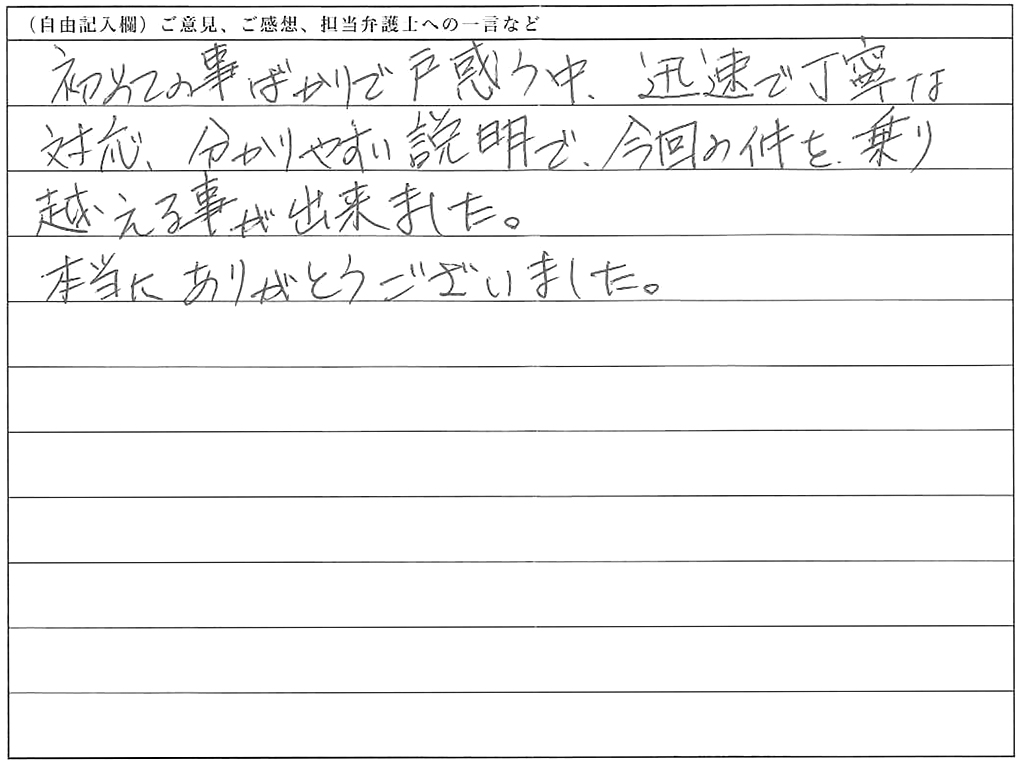 （自由記入欄）ご意見、ご感想、担当弁護士への一言など
初めての事ばかりで戸惑う中、迅速で丁寧な
対応、分かりやすい説明で、今回の件を、乗り
越える事が出来ました。
本当にありがとうございました。